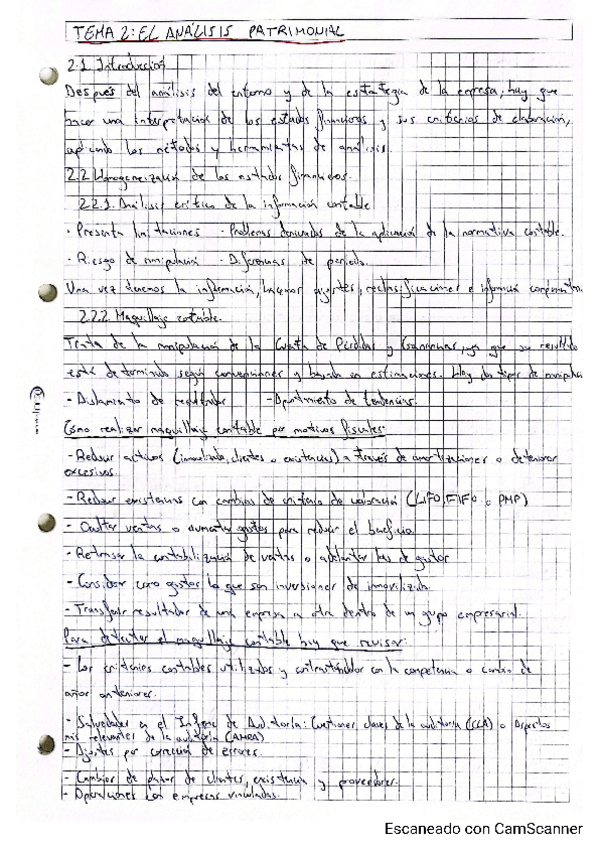 TEMA 2: EL ANÁLISIS PATRIMONIAL
2.1 Introducción
Después del análisis del entorno y de la estrategia de la empresa, hay que
hacer una interpretación de los estados financieros y sus criterios de elaboración,
aplicando los métodos y herramientas de análisis.
2.2 Homogeneización de los estados financieros.
2.2.1. Análisis crítico de la información contable
· Presenta limitaciones · Problemas derivados de la aplicación de la normativa contable.
· Riesgo de manipulación · Diferencias de periodo.
Una vez tenemos la información, hacemos ajustes, reclasificaciones e información
2.2.2. Maquillaje contable.
Trata de la manipulación de la Cuenta de Pérdidas y Ganancias, ya que su resultado
está determinado según convenciones y basado en estimaciones. Hay dos tipos de
- Aislamiento de resultados - Apuntamiento de tendencias.
Cómo realizar maquillaje contable por motivos fiscales:
- Reducir activos (inmovilizado, clientes o existencias) a través de amortizaciones o deterioros
excesivos.
- Reducir existencias con cambios de criterio de valoración (LIFO, FIFO o PMP)
- Ocultar ventas o aumentar gastos para reducir el beneficio.
- Retrasar la contabilización de ventas o adelantar las de gastos
- Considerar como gastos lo que son inversiones de inmovilizado.
- Transferir resultados de una empresa a otra dentro de un grupo empresarial.
Para detectar el maquillaje contable hay que revisar:
- Los criterios contables utilizados y contrastándolos con la competencia o cambio de
años anteriores.
- Salvedades en el Informe de Auditoría: Cuestiones claves de la auditoría (CCA) o Aspectos
más relevantes de la auditoría (AMRA)
- Ajustes por corrección de errores.
- Cambios de plazos de clientes, existencia y proveedores.
- Operaciones con empresas vinculadas.
Escaneado con CamScanner